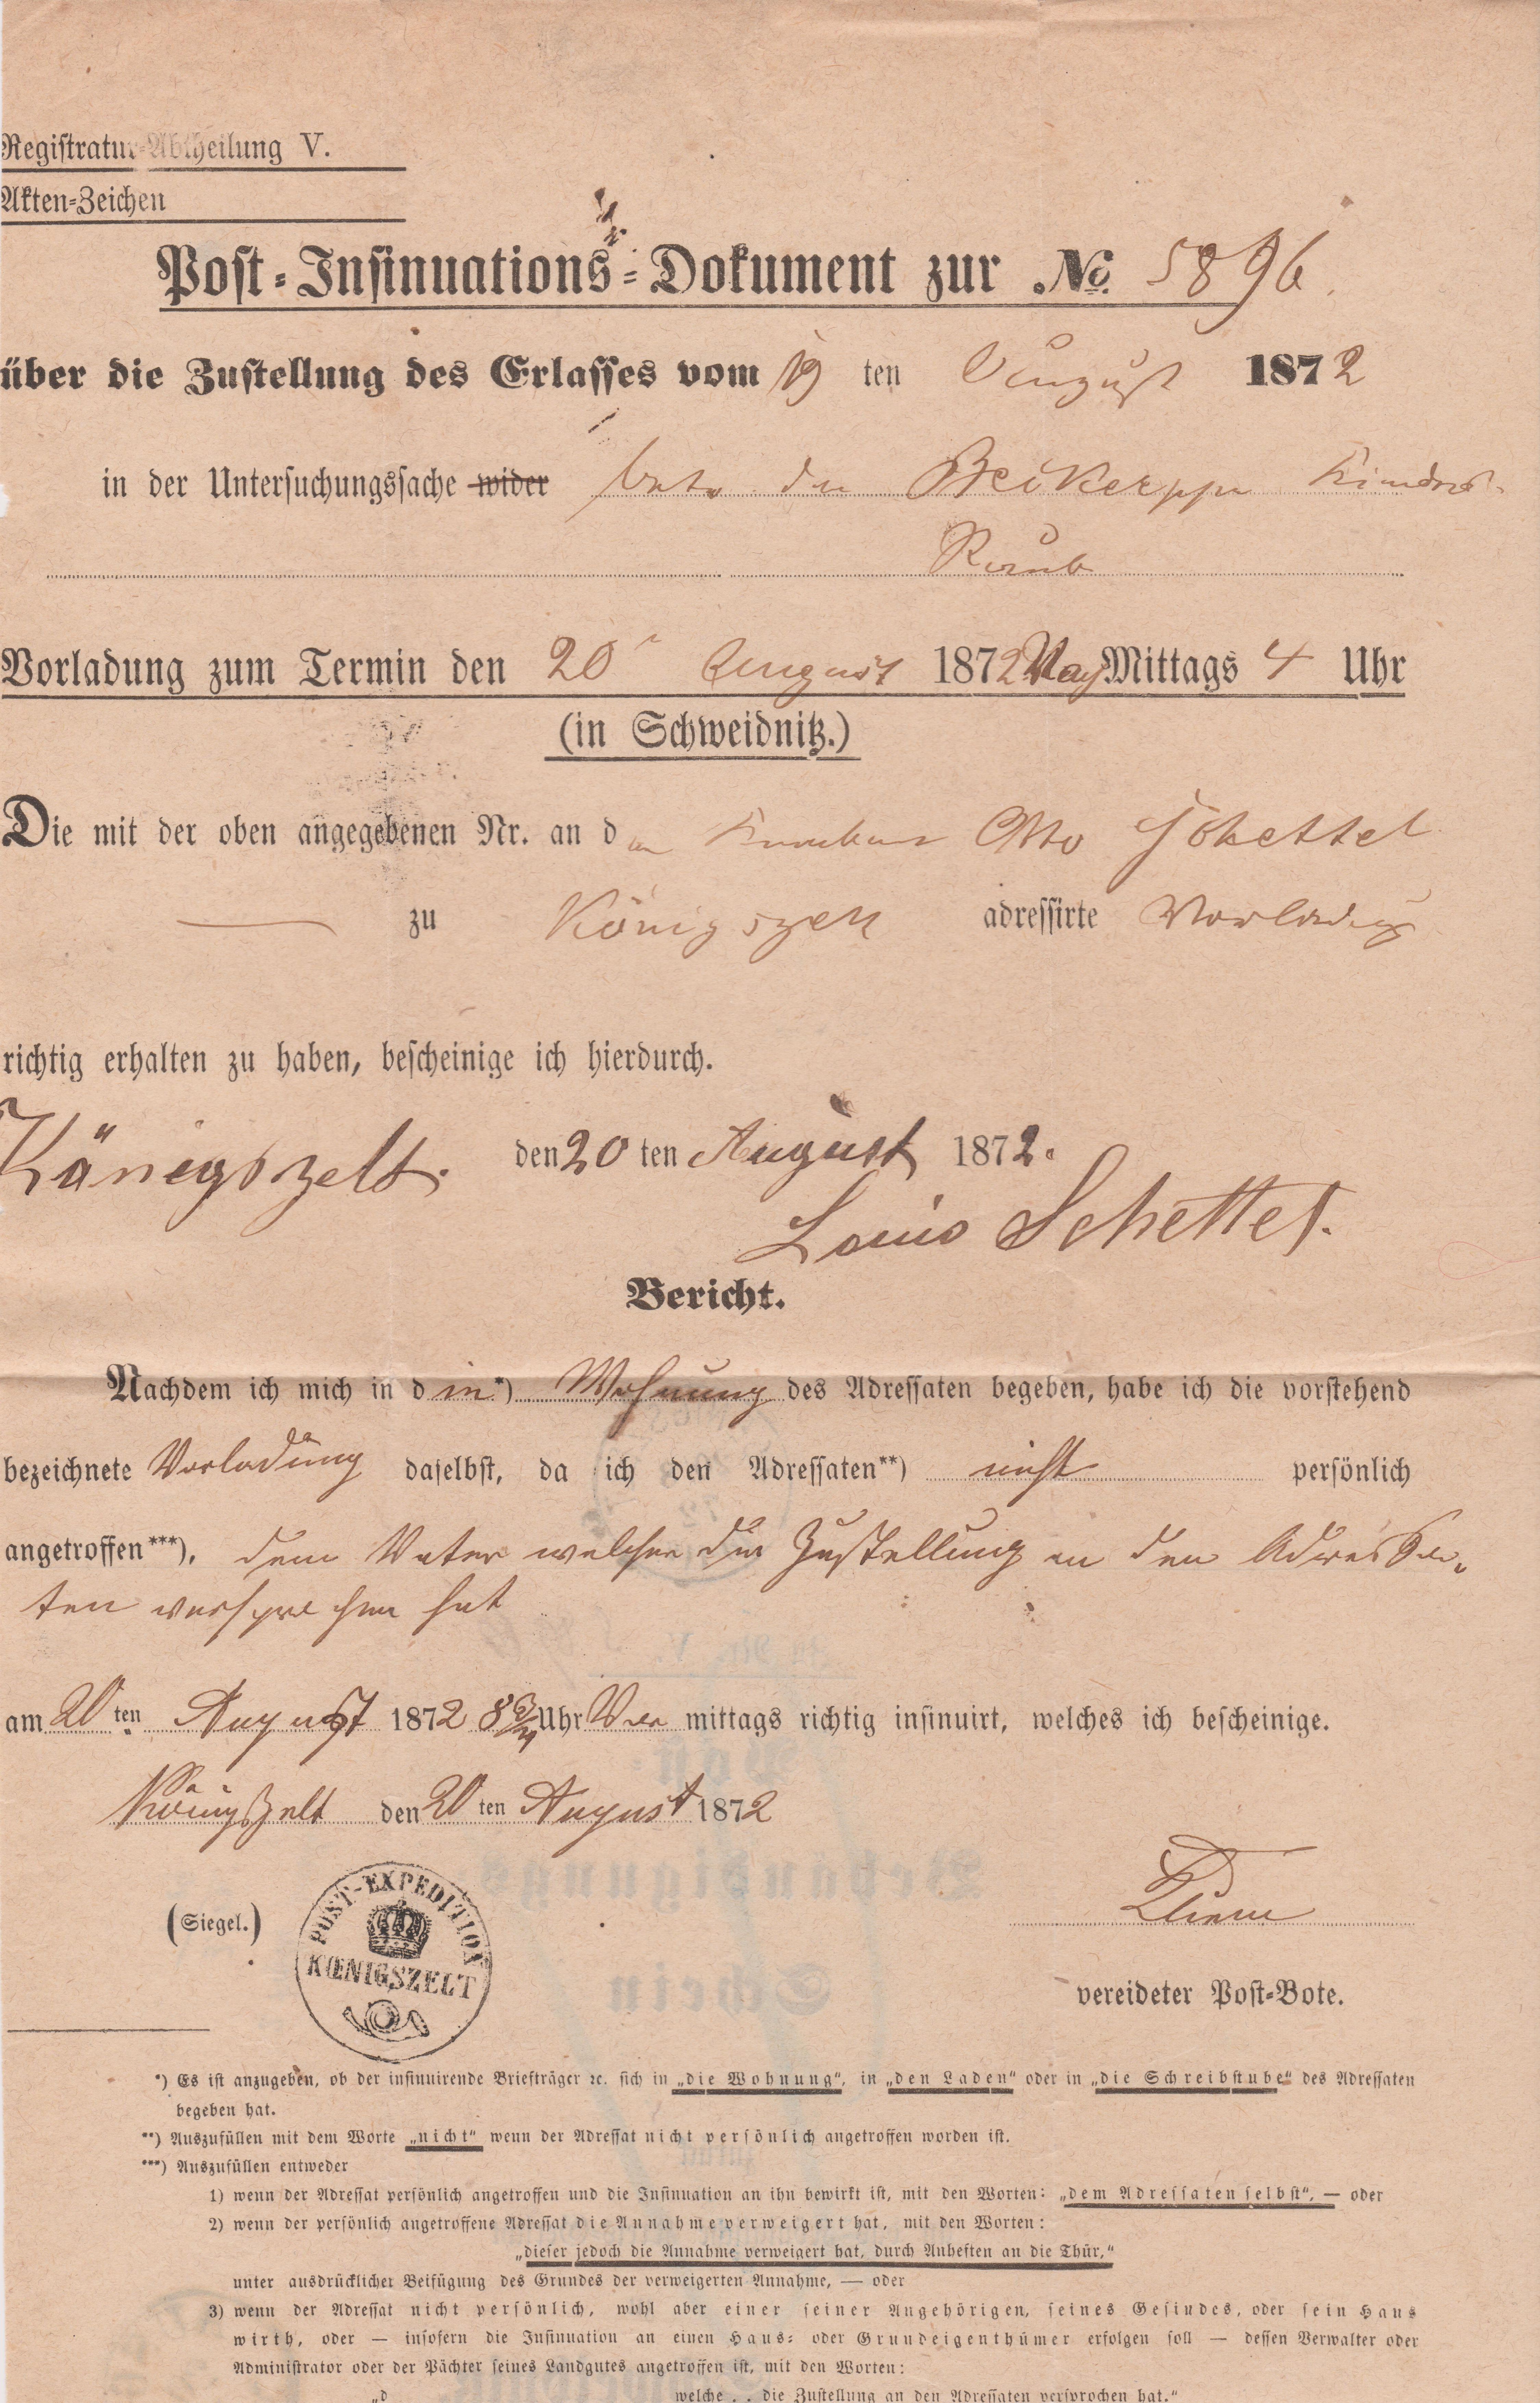 Registratur-Abtheilung V.
Akten-Zeichen
Post-Insinuations-Dokument zur No. 5896.
über die Zustellung des Erlasses vom 19 ten August 1872
in der Untersuchungssache wider betr. den Kinder-
Raub
Vorladung zum Termin den 20 August 1872 Nach Mittags 4 Uhr
(in Schweidnitz.)
Die mit der oben angegebenen Nr. an den Knaben Otto Schettel
zu Königszelt adressirte Vorladung
richtig erhalten zu haben, bescheinige ich hierdurch.
Königszelt. den 20 ten August 1872.
Louis Schettel.
Bericht.
Nachdem ich mich in d ie*) Wohnung des Adressaten begeben, habe ich die vorstehend
bezeichnete Vorladung daselbst, da ich den Adressaten**) nicht persönlich
angetroffen***), dem Vater welcher die Zustellung an den Adressa-
ten versprochen hat
am 20 ten August 1872 8 3/4 Uhr Vor mittags richtig insinuirt, welches ich bescheinige.
Königszelt den 20 ten August 1872
(Siegel.)
POST-EXPEDITION
KŒNIGSZELT
vereideter Post-Bote.
*) Es ist anzugeben, ob der insinuirende Briefträger ꝛc. sich in „die Wohnung“, in „den Laden“ oder in „die Schreibstube“ des Adressaten
begeben hat.
**) Auszufüllen mit dem Worte „nicht“ wenn der Adressat nicht persönlich angetroffen worden ist.
***) Auszufüllen entweder
1) wenn der Adressat persönlich angetroffen und die Insinuation an ihn bewirkt ist, mit den Worten: „dem Adressaten selbst“, — oder
2) wenn der persönlich angetroffene Adressat die Annahme verweigert hat, mit den Worten:
„dieser jedoch die Annahme verweigert hat, durch Anheften an die Thür,“
unter ausdrücklicher Beifügung des Grundes der verweigerten Annahme, — oder
3) wenn der Adressat nicht persönlich, wohl aber einer seiner Angehörigen, seines Gesindes, oder sein Haus
wirth, oder — insofern die Insinuation an einen Haus- oder Grundeigenthümer erfolgen soll — dessen Verwalter oder
Administrator oder der Pächter seines Landgutes angetroffen ist, mit den Worten:
„d welche . . die Zustellung an den Adressaten versprochen hat.“